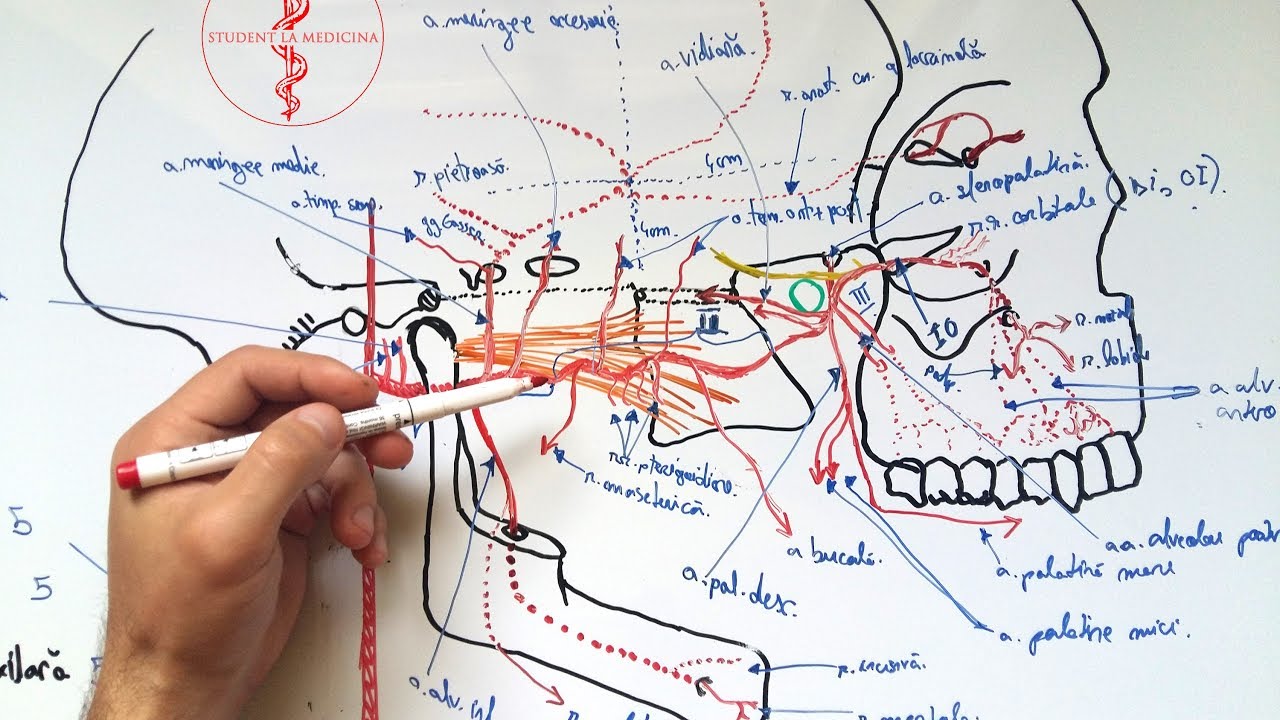 STUDENT LA MEDICINA
a. meningee accesorie
a. vidiană
a. lacrimală
r. anast. cu.
a. meningee medie.
r. pietroasă
4cm
a. sfenopalatină.
r.r. orbitale
OI).
a. timp.
gg. Gasser
4cm.
a. tem. ant + post
III
II
IO
r. labiale
a. alv
antero
rr. pterigoidiene.
r. maseterică.
5
5
a. bucală.
a. pal. desc.
aa. alveolare post
a. palatină mare
a. palatine mici.
r. incisivă.
a. alv. inf
xilară
5
r. mentală